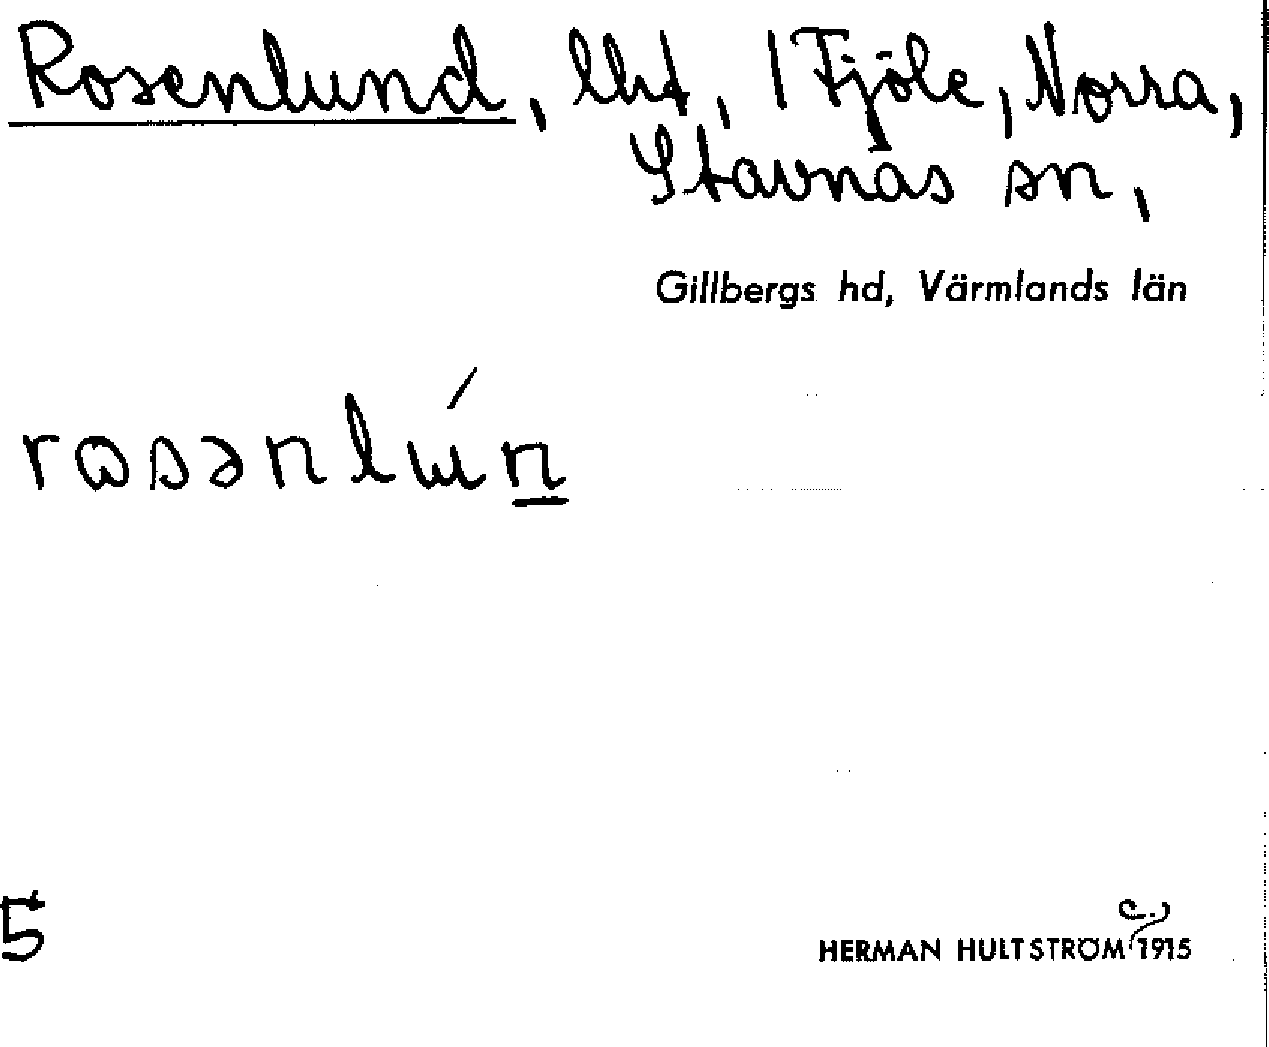 Rosenlund, lht, 1 Fjöle, Norra,
Stavnäs sn,
Gillbergs hd, Värmlands län
rosənlún
5
HERMAN HULTSTRÖM (c.) 1915